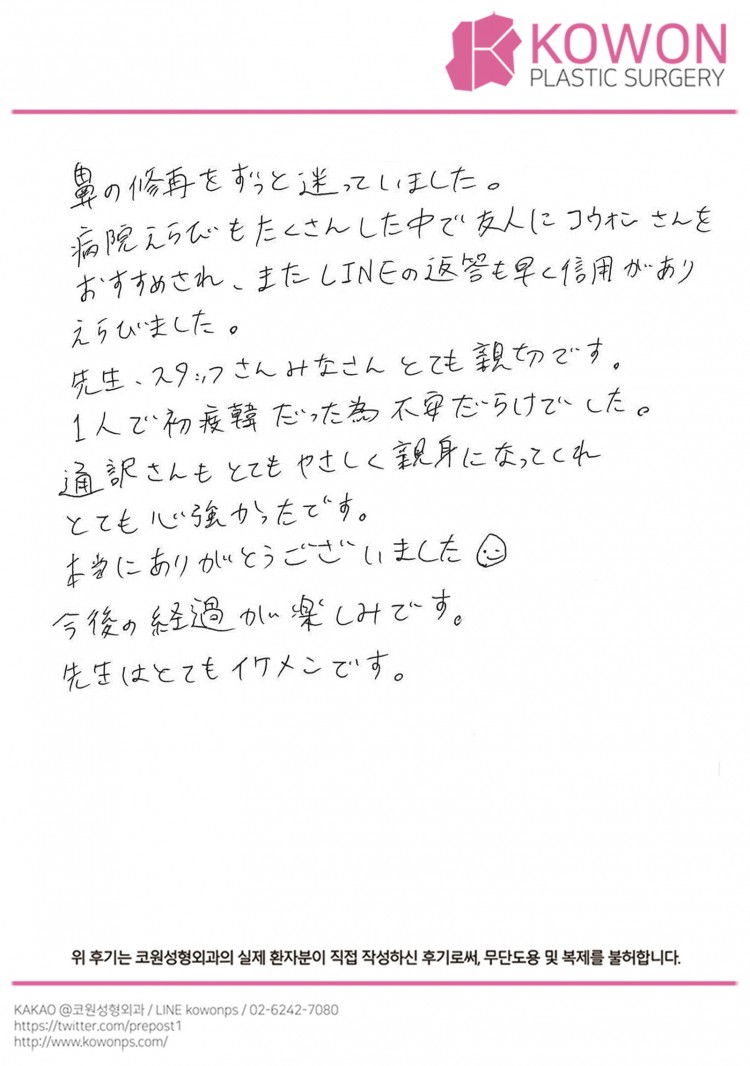 KOWON
PLASTIC SURGERY
鼻の修再をずっと迷っていました。
病院えらびもたくさんした中で友人にコウォンさんを
おすすめされ、またLINEの返答も早く信用があり
えらびました。
先生、スタッフさんみなさんとても親切です。
1人で初度韓だった為不安だらけでした。
通訳さんもとてもやさしく親身になってくれ
とても心強かったです。
本当にありがとうございました
今後の経過が楽しみです。
先生はとてもイケメンです。
위 후기는 코원성형외과의 실제 환자분이 직접 작성하신 후기로써, 무단도용 및 복제를 불허합니다.
KAKAO @코원성형외과 / LINE kowonps / 02-6242-7080
https://twitter.com/prepost1
http://www.kowonps.com/